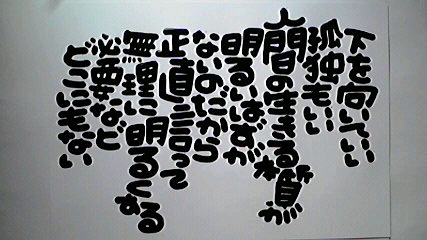 下を向いていい
孤独もいい
人間の生きる本質が
明るいはずが
ないのだから
正直言って
無理に明るくする
必要など
どこにもない